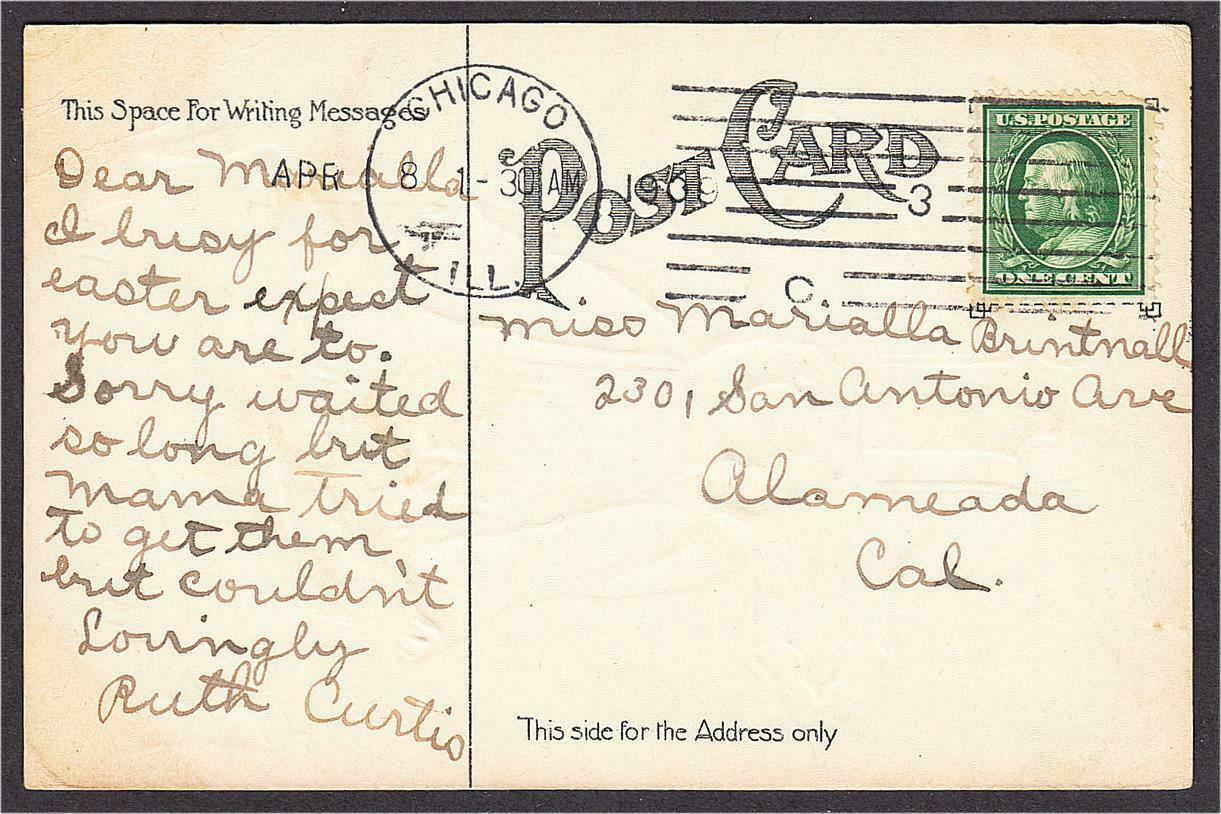 This Space For Writing Messages
CHICAGO
ILL.
APR 8 1-30 AM 1909
POST CARD
3
C
U.S. POSTAGE
ONE CENT
Dear Marialla
I busy for
easter expect
you are to.
Sorry waited
so long but
Mama tried
to get them
but couldn't
Lovingly
Ruth Curtis
Miss Marialla Brintnall
2301 San Antonio Ave
Alameada
Cal.
This side for the Address only